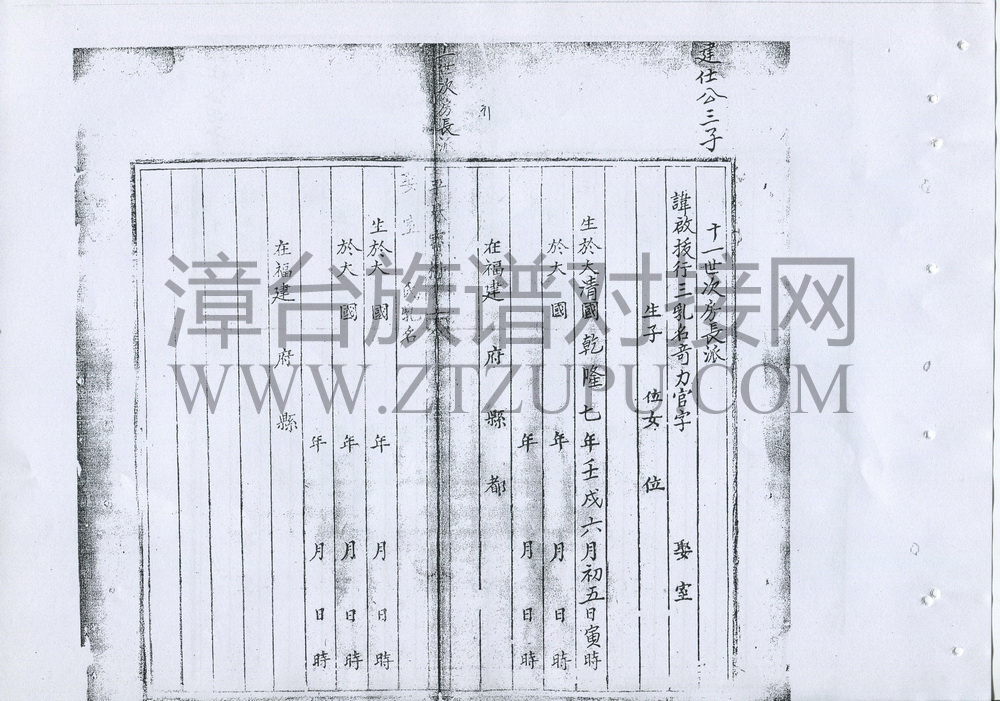 建仕公三子
十一世次房長派
諱啟援行三乳名奇力官字 娶室
生子 位女 位
生於大清國乾隆七年壬戌六月初五日寅時
於大 國 年 月 日時
年 月 日時
在福建 府 縣 都
世次房長派
娶室 乳名
生於大 國 年 月 日時
於大 國 年 月 日時
年 月 日時
在福建 府 縣
漳台族谱对接网
WWW.ZTZUPU.COM